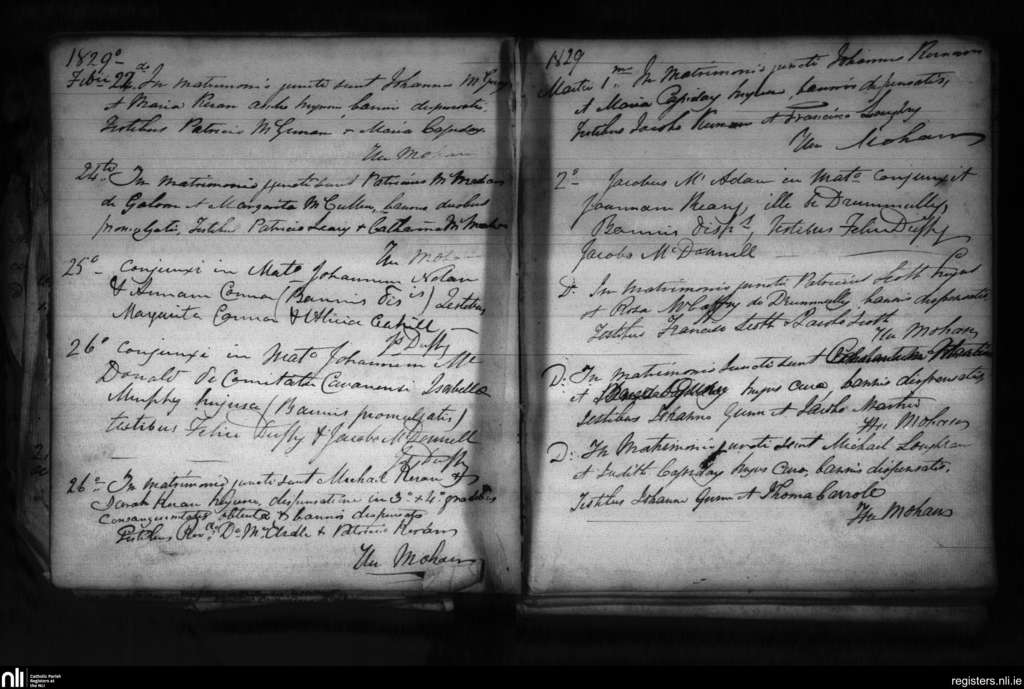 1829º
Febii 22. de In matrimonio juncti sunt Johannes
et Maria Keran ambo hujus, bannis dispensatis,
Testibus Patricio McGuran + Maria Casfiday.
Hu Mohan
24th In matrimonio juncti sunt Patricius McMadan
de Galoon et Margarita McCullen, bannis duobus
promulgatis, Testibus Patricio Leary + Catharina
Hu Mohan
25º conjunxi in Mato Johannem Nolan
& Annam Connor (Bannis Disis) Testibus
Margarita Connor & Alicia Cahill
P Duffy
26º conjunxi in Mato Johannem Mc
Donald de Comitatu Cavanensi Isabellæ
Murphy hujusce (Bannis promulgatis)
testibus Felice Duffy & Jacobo McDonnell
P Duffy
26º In matrimonio juncti sunt Michael Keran et
Sarah Keran hujus, dispensatione in 3º + 4º gradibus
consanguinitatis obtenta & bannis dispensatis
Testibus Revdo Do McArdle + Patricio
Hu Mohan
1829
Martii 1mo In matrimonio juncti Johannes
et Maria Casfiday hujus, bannis dispensatis,
Testibus Jacobo et Francisco
Hu Mohan
2º Jacobus McAdam in Mato conjunxit
Joannam Keary, ille de Drummully,
Bannis Dispis, testibus Felice Duffy
Jacobo McDonnell
Dº In matrimonio juncti Patricius Scott hujus
et Rosa McCaffry de Drummully bannis dispensatis
Testibus Francisco Scott + Jacobo Scott
Hu Mohan
D: In matrimonio juncti sunt Martin
et hujus curæ, bannis dispensatis,
Testibus Johanne Gunn et Jacobo Martin
Hu Mohan
D: In Matrimonio juncti sunt Michael Loughran
et Judith Casfiday hujus curæ, bannis dispensatis.
Testibus Johanne Gunn et Thoma Carrole
Hu Mohan
nli Catholic Parish
Registers at
the NLI
registers.nli.ie